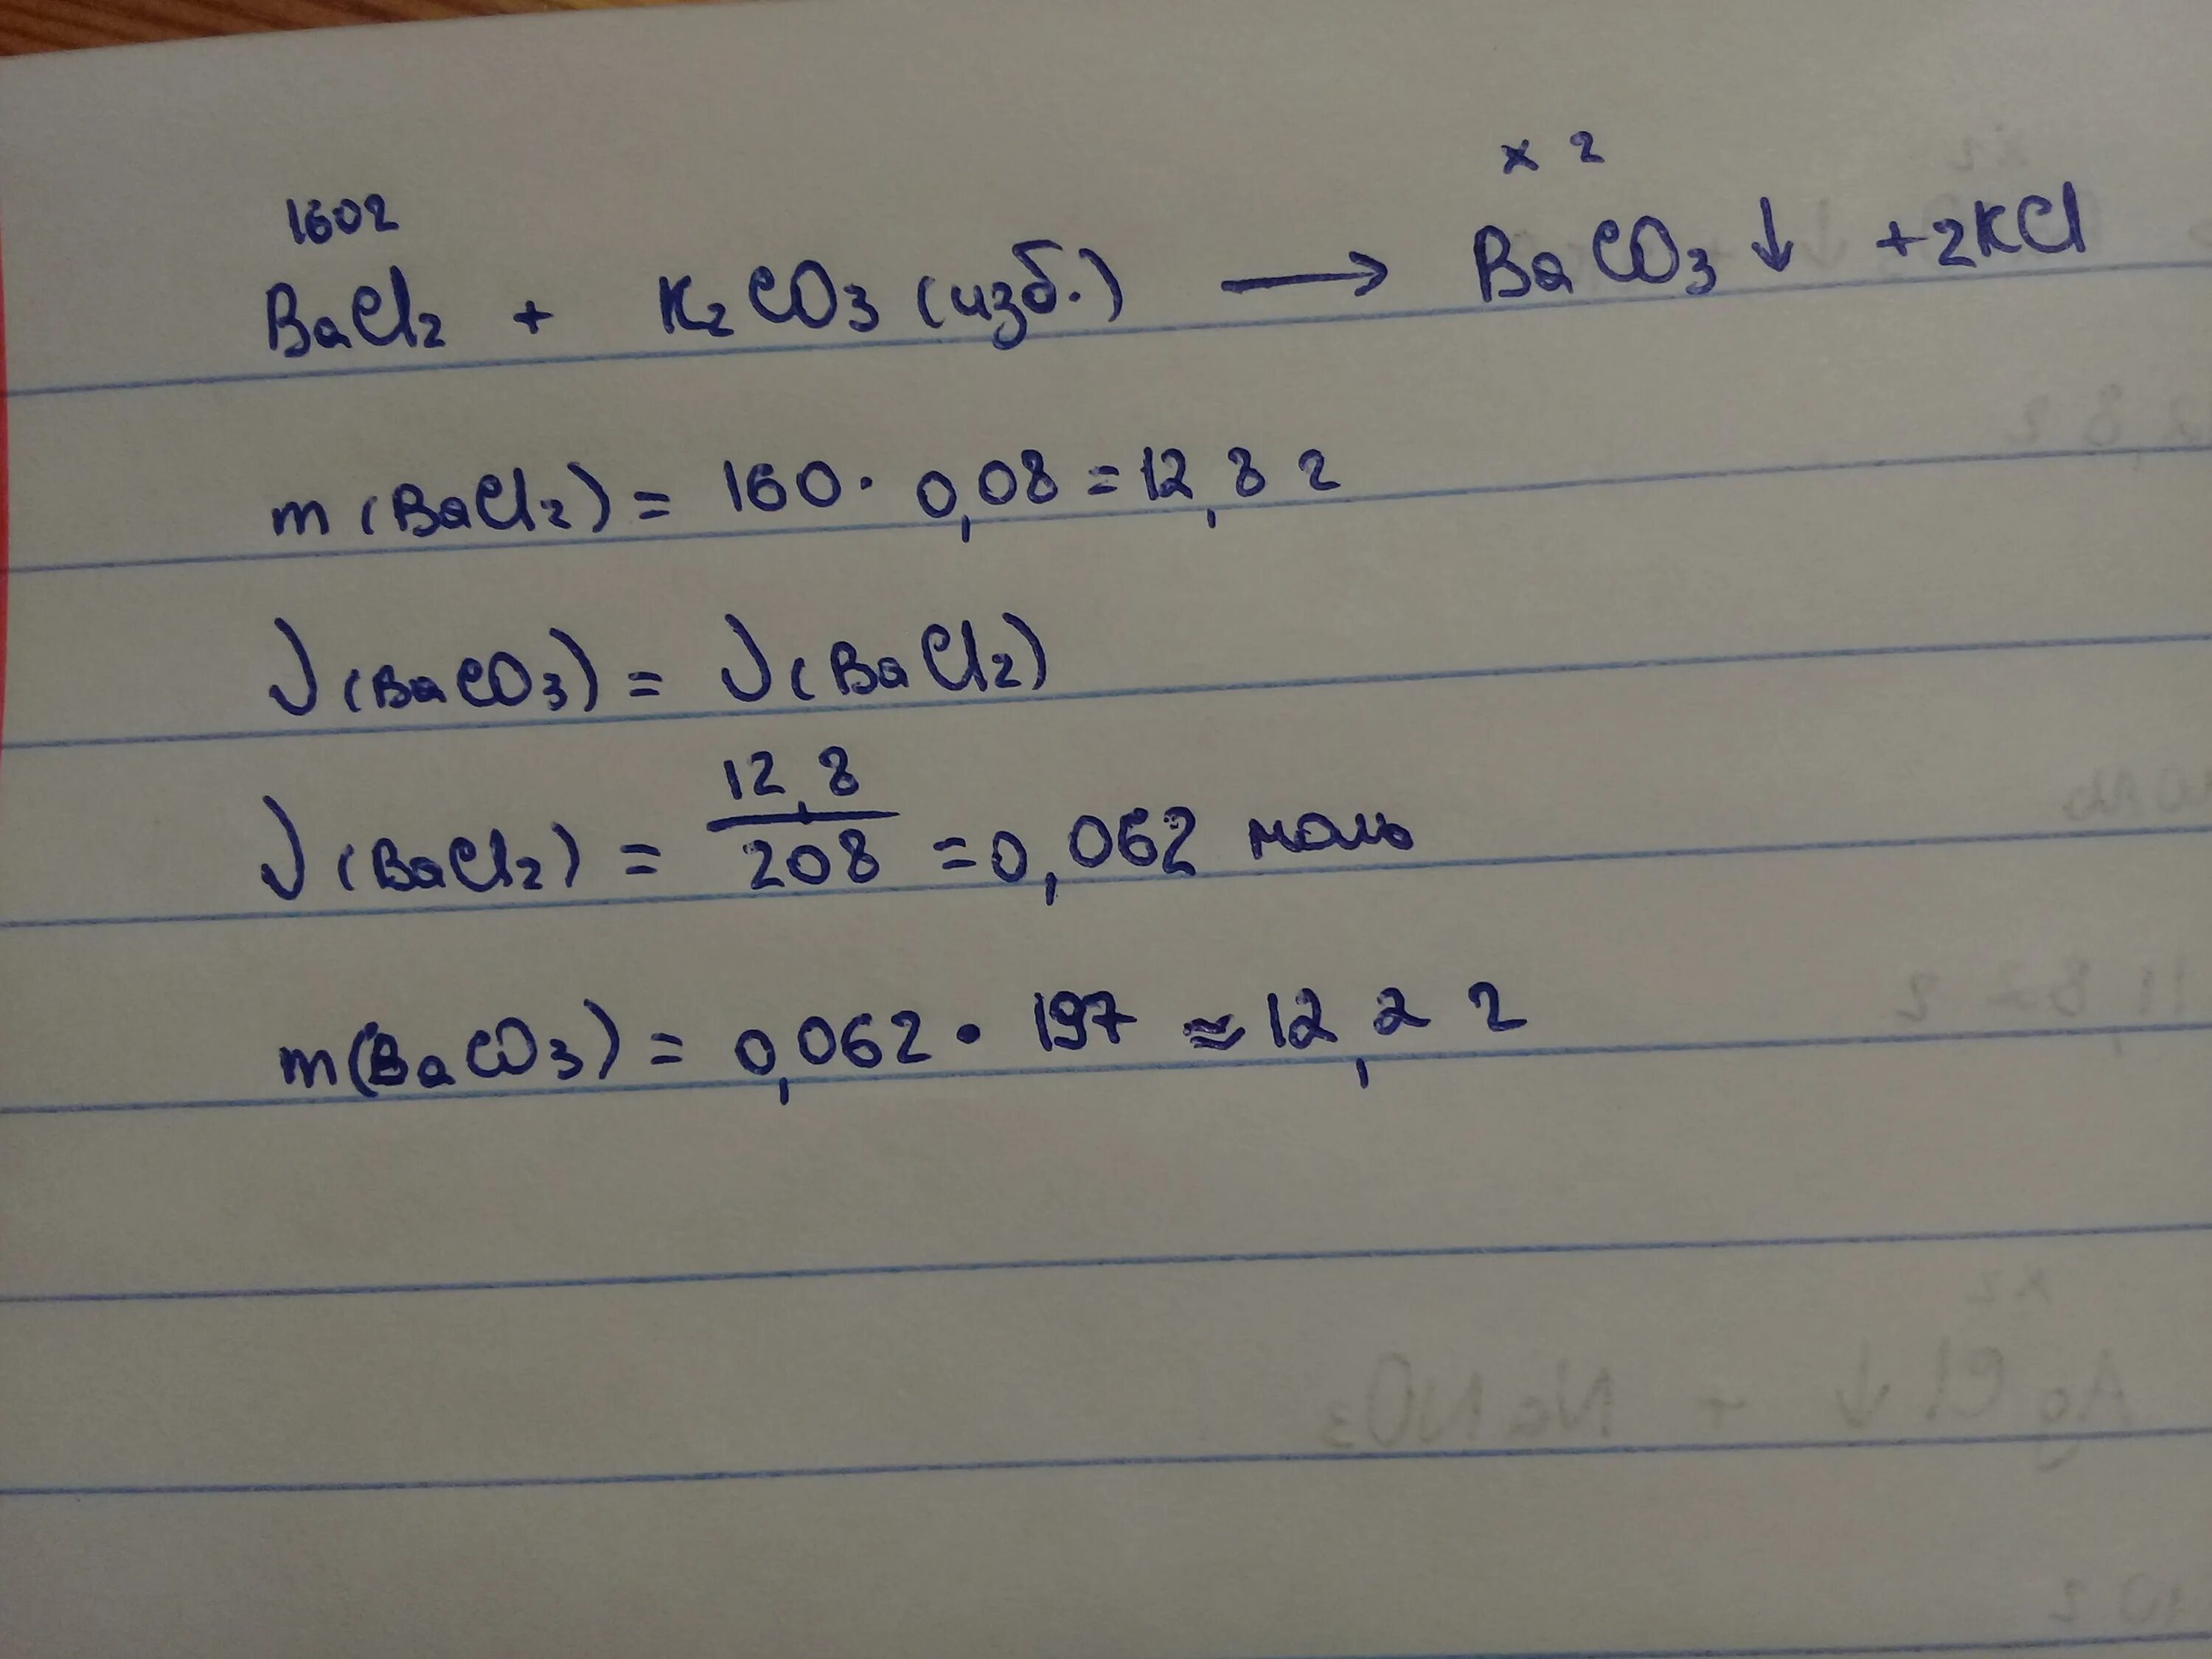 160г х г
BaCl2 + K2CO3 (изб.) → BaCO3↓ + 2KCl
m(BaCl2) = 160 · 0,08 = 12,8 г
ν(BaCO3) = ν(BaCl2)
ν(BaCl2) = 12,8/208 = 0,062 моль
m(BaCO3) = 0,062 · 197 ≈ 12,2 г
AgCl↓ + NaNO3